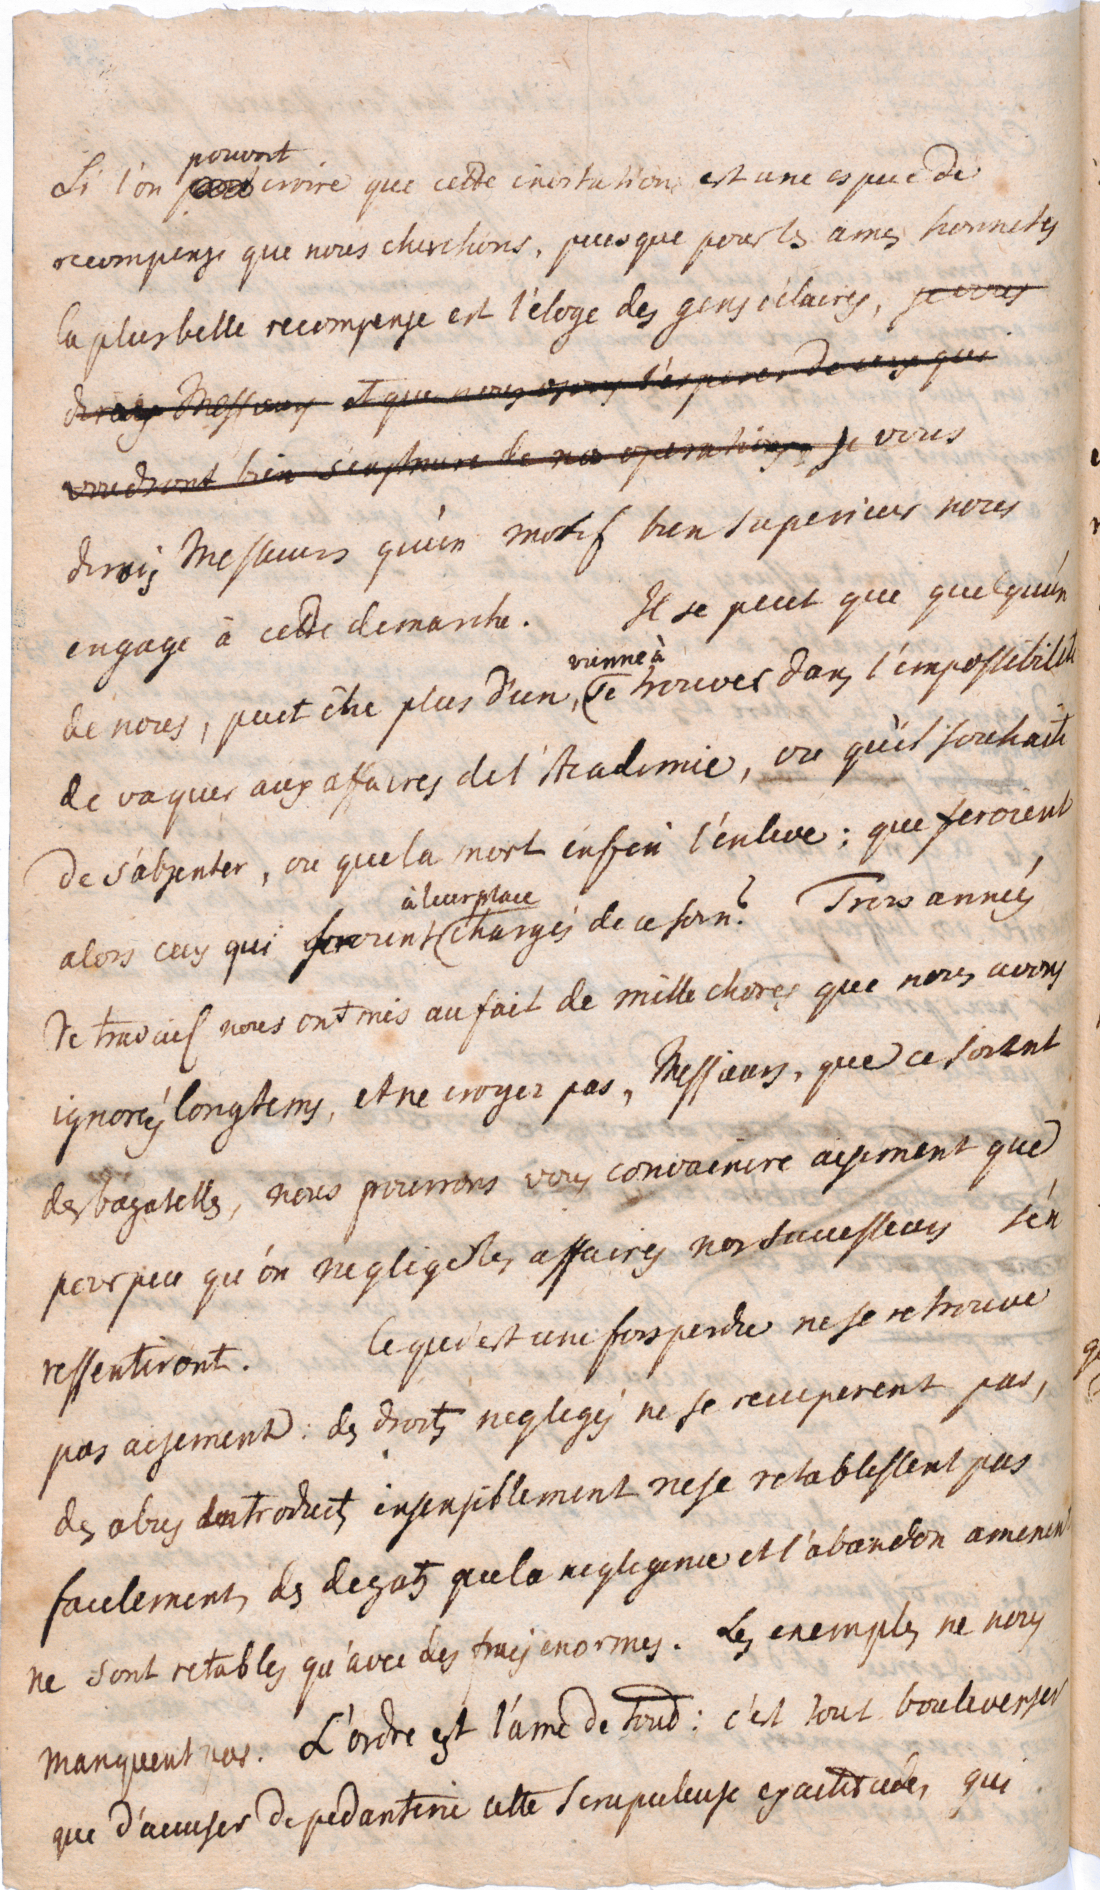 pouvoit
Si l'on peut croire que cette invitation est une espece de
recompense que nous cherchions, puisque pour les ames honnetes
la plus belle recompense est l'éloge des gens éclairés, je vous
dirais Messieurs et que nous osons l'esperer de ceux qui
voudront bien s'instruire de nos operations, je vous
dirais Messieurs qu'un motif bien superieur nous
engage à cette demarche. Il se peut que quelqu'un
vienne à
de nous, peut être plus d'un, se trouver dans l'impossibilité
de vaquer aux affaires de l'Academie, ou qu'il souhaite
de s'absenter, ou que la mort enfin l'enleve ; que feroient
à leur place
alors ceux qui seroient chargés de ce soin? Trois années
de travail nous ont mis au fait de mille choses que nous avons
ignorés longtems, et ne croyez pas, Messieurs, que ce soient
des bagatelles, nous pourrons vous convaincre aisement que
pour peu qu'on neglige les affaires nos successeurs s'en
ressentiront. Ce qui est une fois perdu ne se retrouve
pas aisement : des droits negligés ne se recuperent pas,
des abus introduits insensiblement ne se retablissent pas
facilement, des degats que la negligence et l'abandon amenent
ne sont retablis qu'avec des frais enormes. Les exemples ne nous
manquent pas. L'ordre est l'ame de tout : c'est tout bouleverser
que d'accuser de pedanterie cette scrupuleuse exactitude, qui